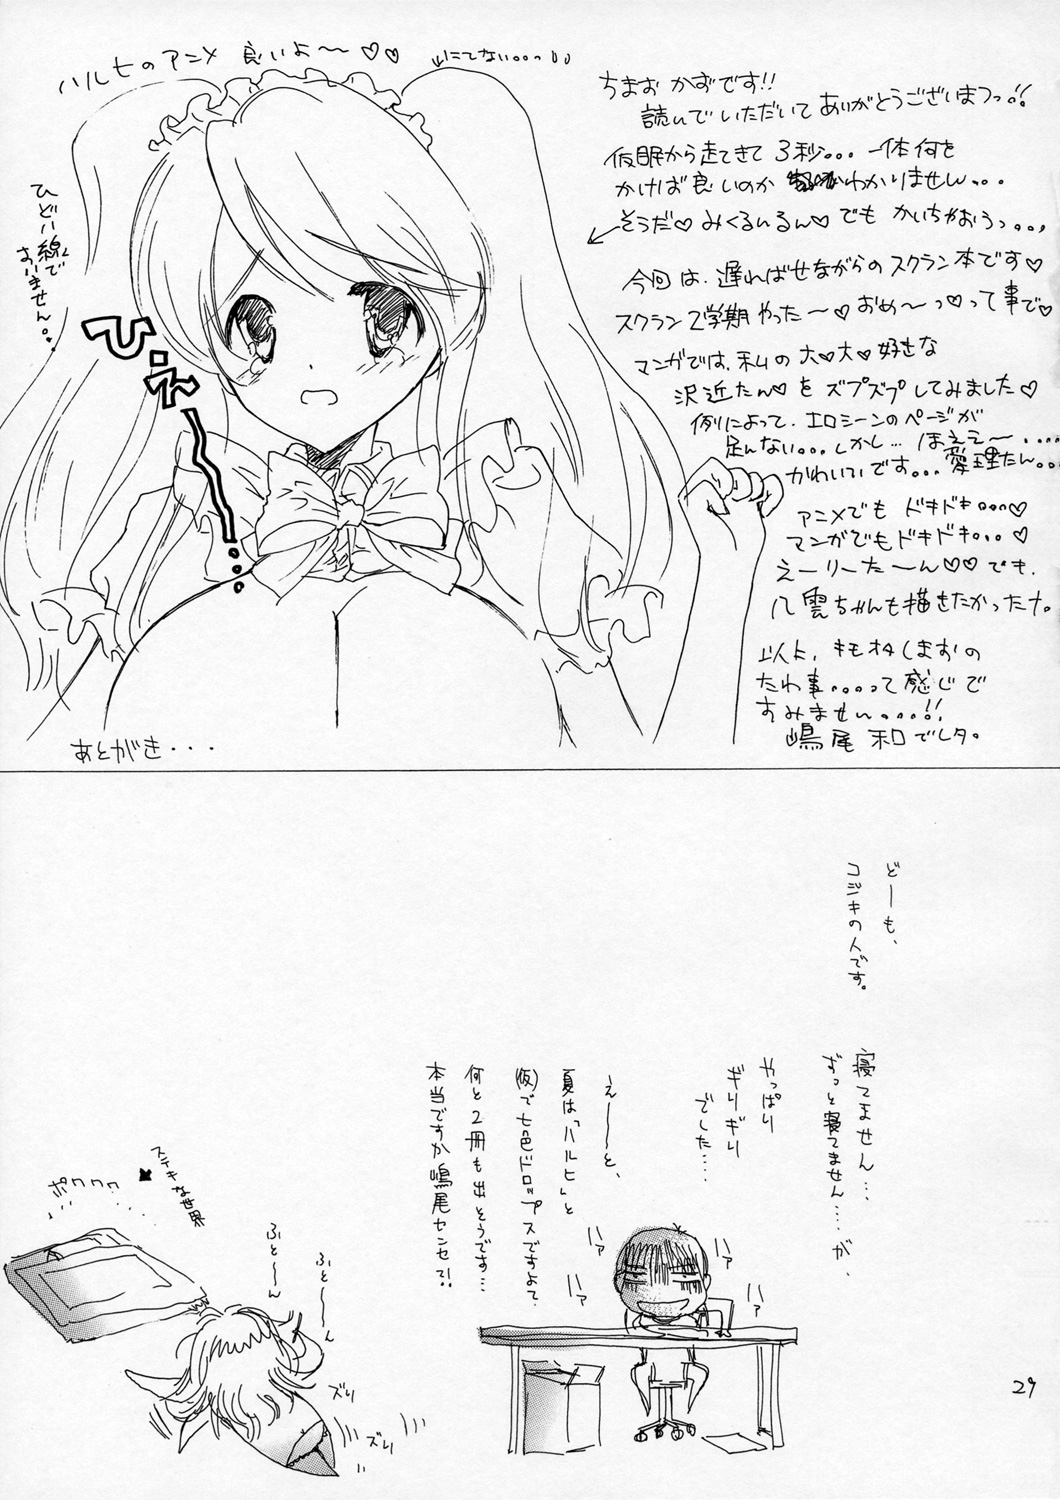 ハルヒのアニメ 良いよ〜♡♡
↙にてない。。っ
ひどい線で
すいません。。
ひ・え〜〜…
ちまお かずです!!
読んでいただいてありがとうございまつっ!!
仮眠から走てきて 3秒。。。一体何を
かけば良いのか わかりません。。。
そうだ♡みくるいるん♡でも かいちがおうっ。。。
今回は、遅ればせながらのスクラン本です♡
スクラン2学期やった〜♡おめ〜っ♡って事で♡
マンガでは、私の大♡大♡好きな
沢近たん♡をズプズプしてみました♡
例によって、エロシーンのページが
足んない。。。しかし… ほええ〜・・・・
かわいいです。。。愛理たん。。。
アニメでも ドキドキ。。。♡
マンガでもドキドキ。。。♡
えーりーたーん♡♡でも、
八雲ちゃんも描きたかったナ。
以上、キモオタしまおの
たわ事。。。。って感じで
すみません〜。。。。!!
嶋尾 和でしタ。
あとがき・・・
どーも、
コジキの人です。
寝てません…
ずっと寝てません……が、
やっぱり
ギリギリ
でした…
えーーと、
夏は「ハルヒ」と
(仮)で七色ドロップスですよて、
何と2冊も出そうです…
本当ですか嶋尾センセ?!
ハァ
ハァ
ハァ
ハァ
ステキな世界
ポワワワ
ふとーーん
ふとーーん
ズリ
ズリ
29